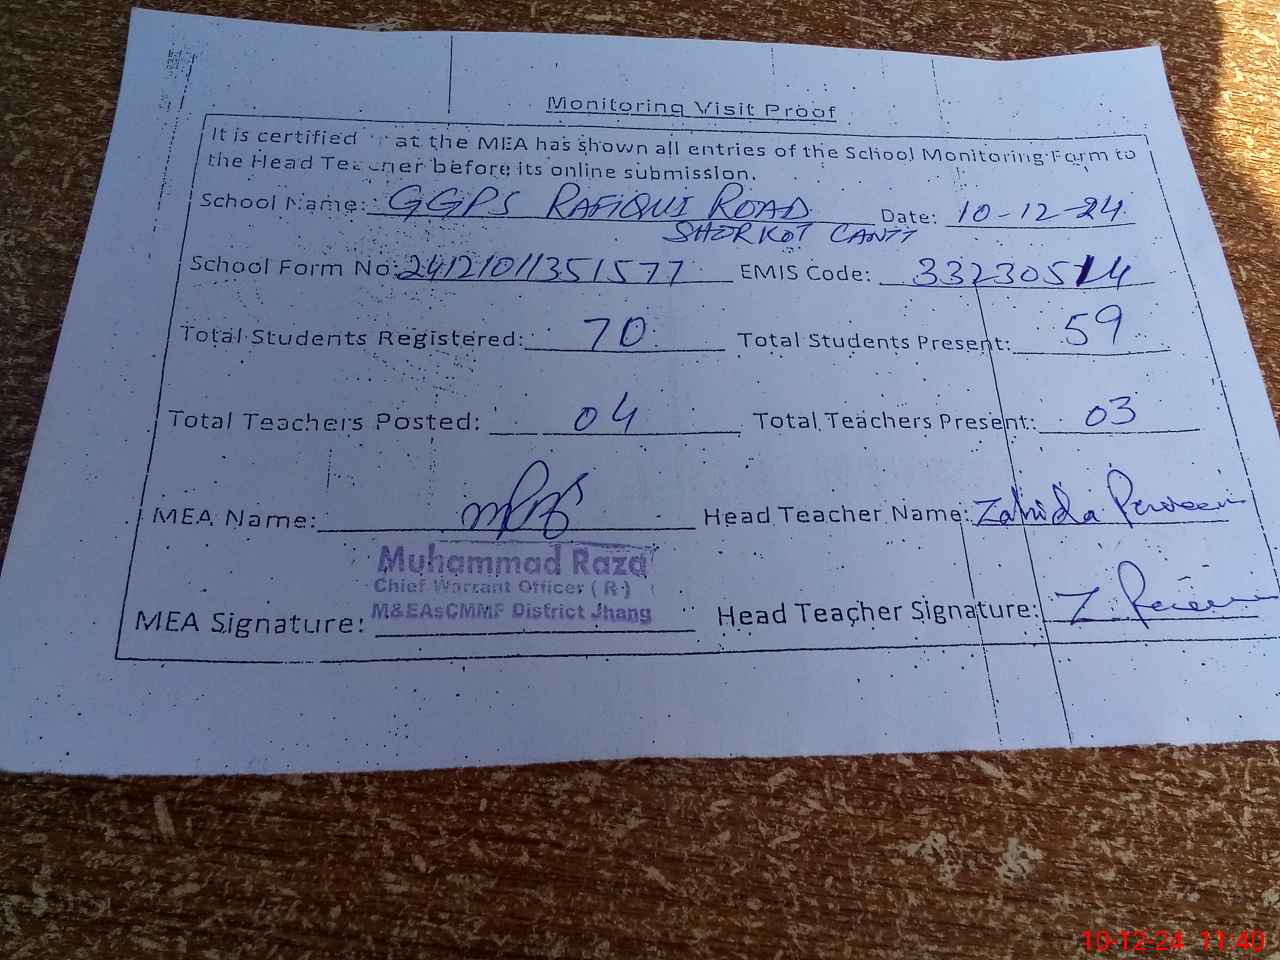 Monitoring Visit Proof
It is certified at the MEA has shown all entries of the School Monitoring Form to
the Head Teacher before its online submission.
School Name: GGPS RAFIQUI ROAD Date: 10-12-24
SHORKOT CANTT
School Form No: 24121011351577 EMIS Code: 33230514
Total Students Registered: 70 Total Students Present: 59
Total Teachers Posted: 04 Total Teachers Present: 03
MEA Name: Head Teacher Name: Zahida Perveen
Muhammad Raza
Chief Warrant Officer (R)
M&EAsCMMF District Jhang
MEA Signature: Head Teacher Signature: Z. Perveen
10-12-24 11:40